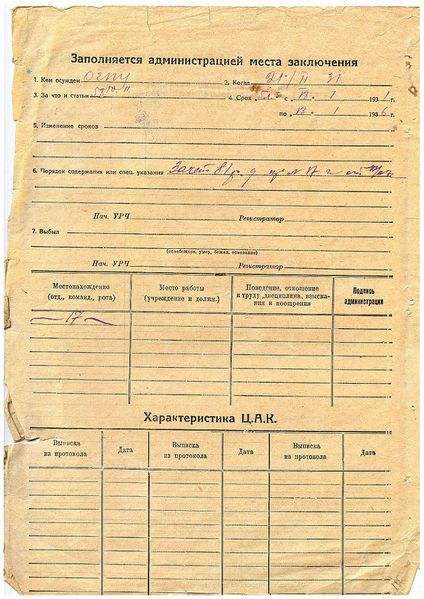 Заполняется администрацией места заключения
1. Кем осужден ОГПУ 2. Когда 21/II 31
3. За что и статьи 4. Срок с 13 1 1931 г.
по 13 1 1936 г.
5. Изменение сроков
6. Порядок содержания или спец. указания Зачет 81 р. д.
Нач. УРЧ Регистратор
7. Выбыл
(освобожден, умер, бежал, основание)
Нач. УРЧ Регистратор
Местонахождение (отд., команд., рота) Место работы (учреждение и должн.) Поведение, отношение к труду, дисциплина, взыскания и поощрения Подпись администрации
17
Характеристика Ц.А.К.
Выписка из протокола Дата Выписка из протокола Дата Выписка из протокола Дата